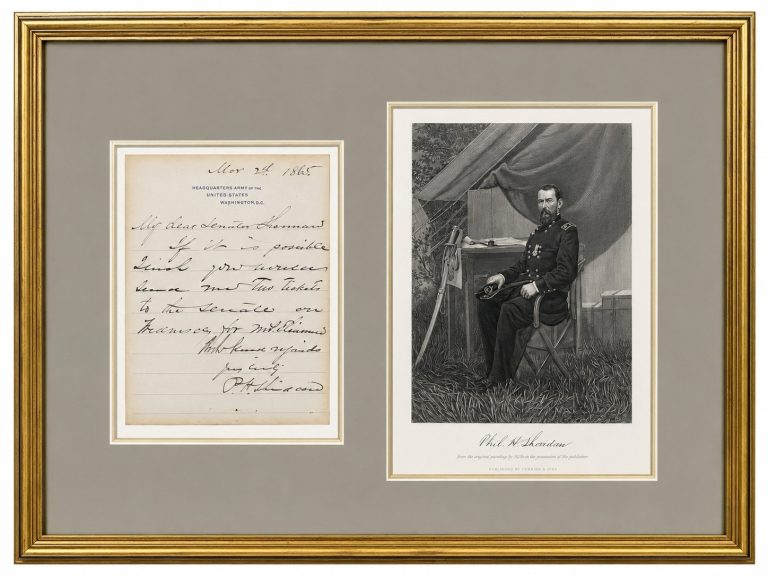 Mar 2d. 1865.
HEADQUARTERS ARMY OF THE
UNITED STATES
WASHINGTON, D.C.
My dear Senator
If it is possible
I wish you would
send me Two Tickets
to the Senate on
for
kind regards
P. H. Sheridan
Phil. H Sheridan
from the original painting by in the possession of the publishers
PUBLISHED BY